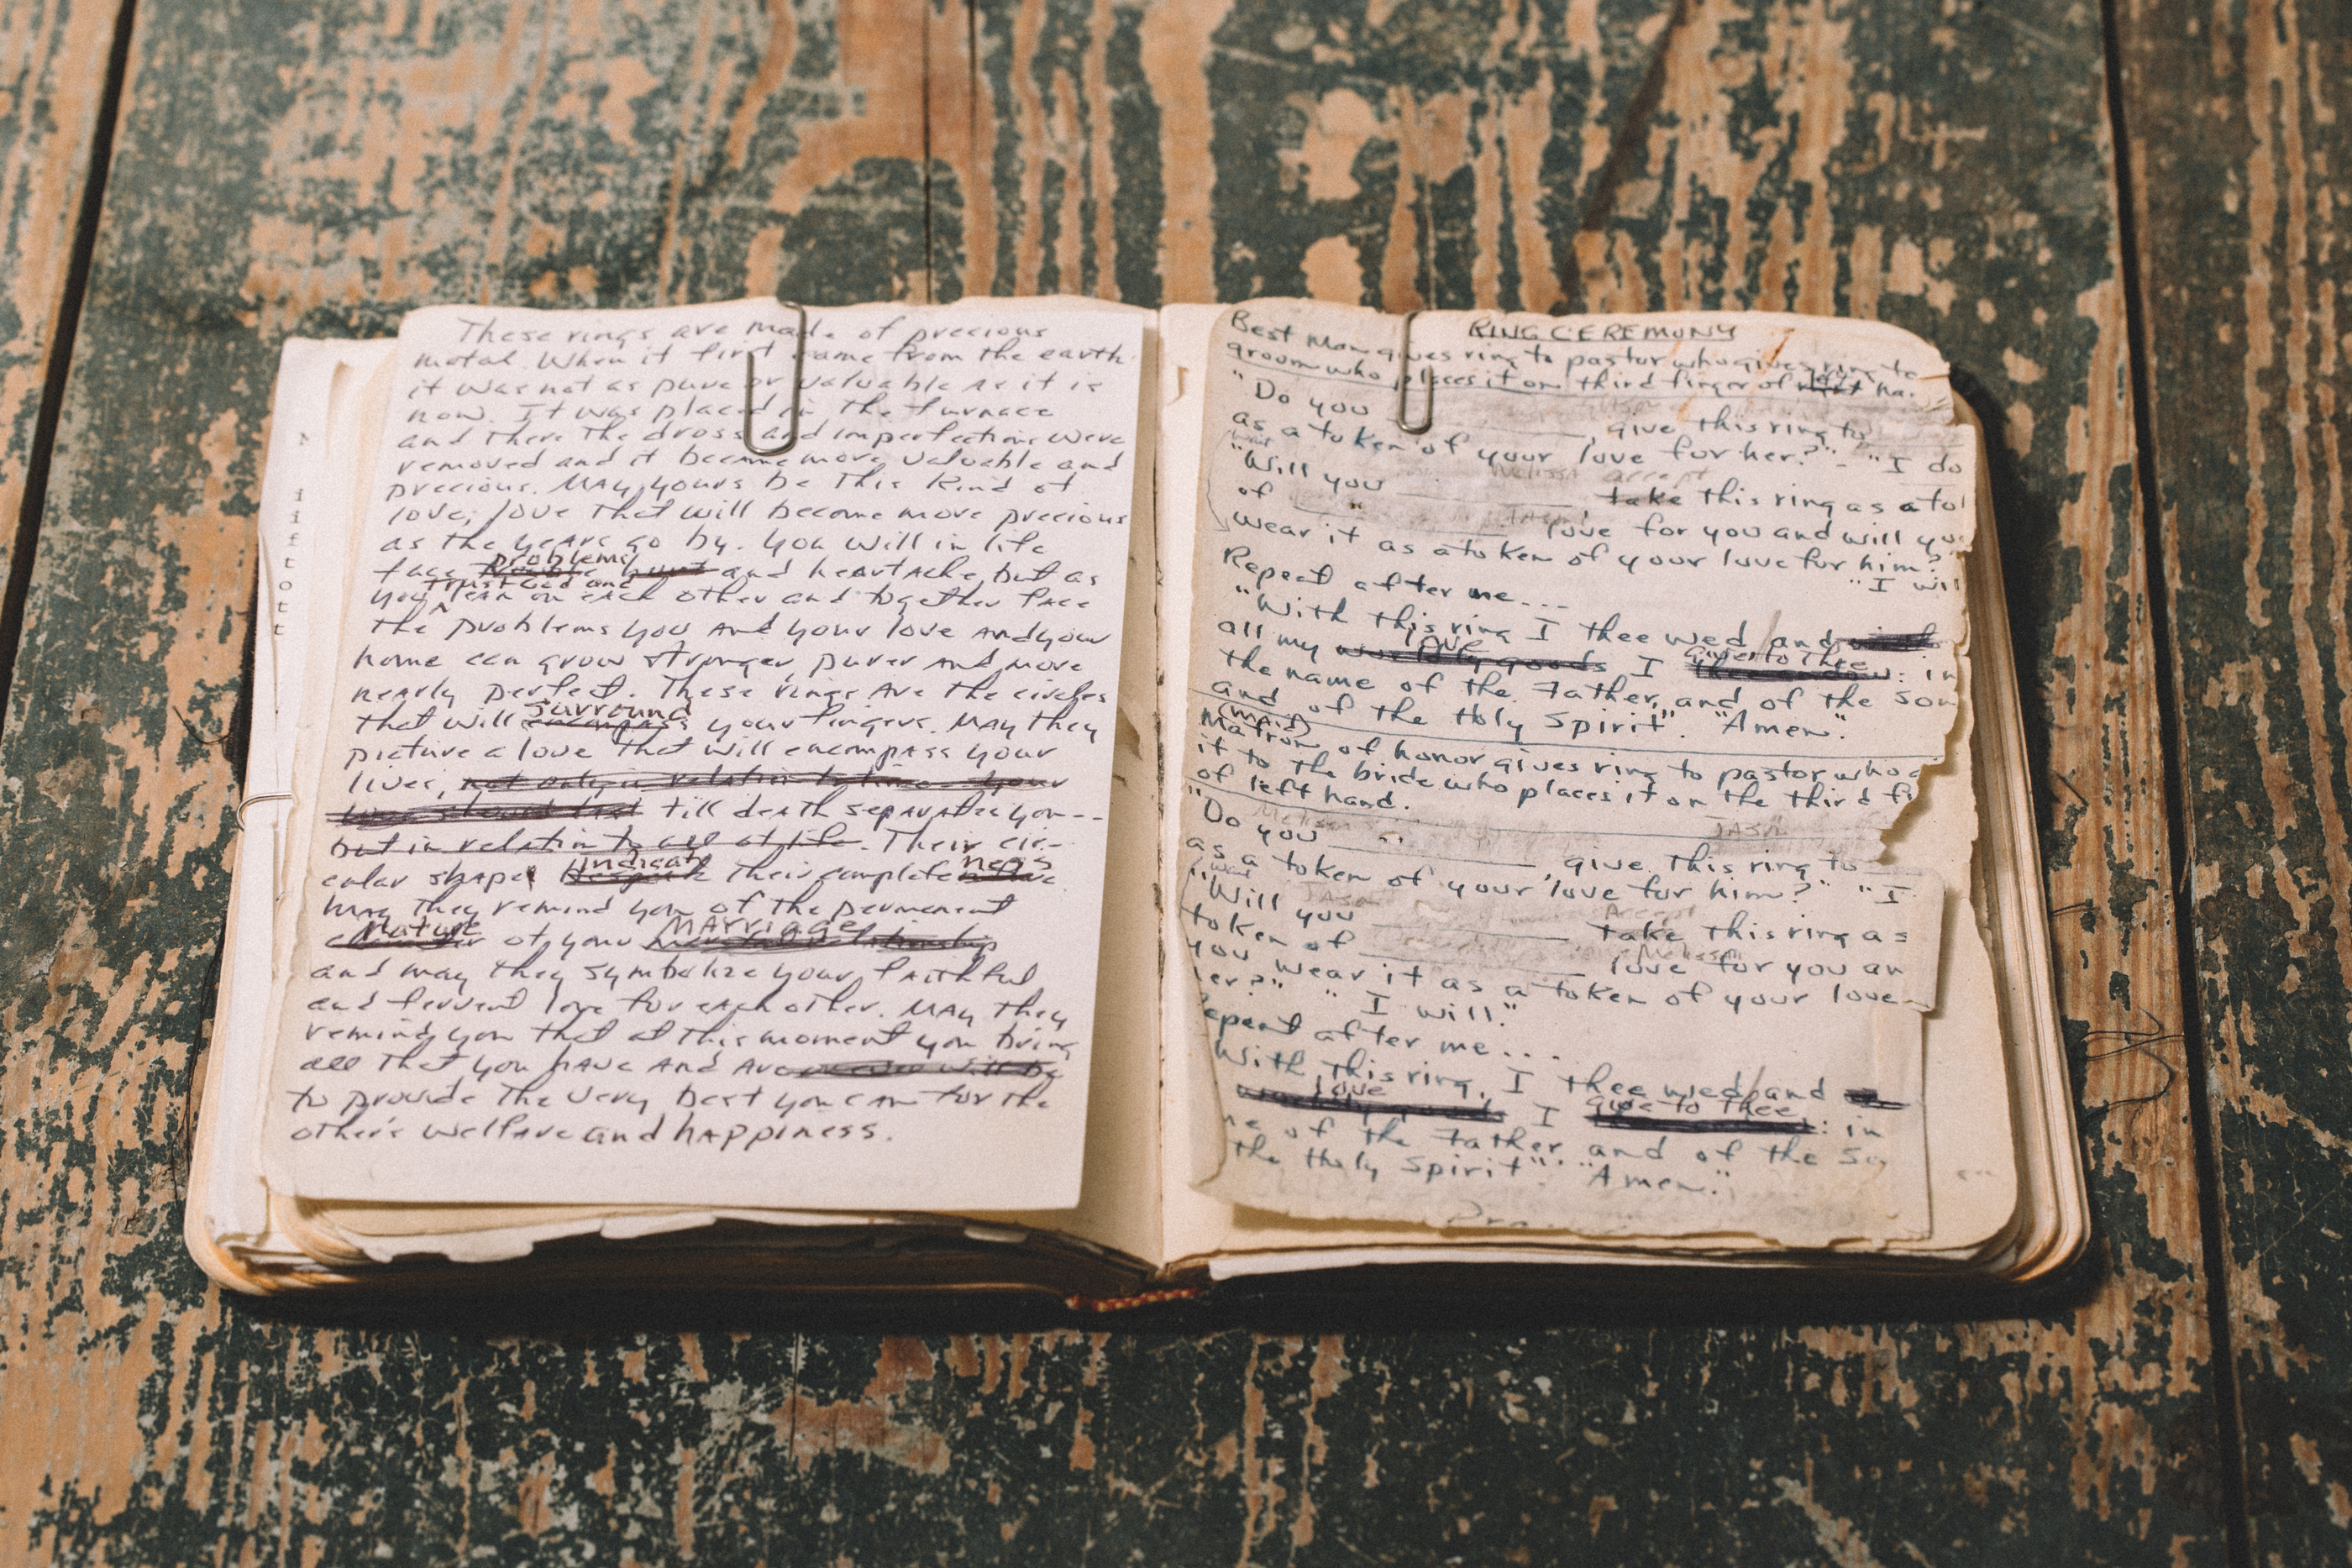 These rings are made of precious
metal. When it first came from the earth
it was not as pure or valuable as it is
now. It was placed in the furnace
and there the dross and imperfections were
removed and it became more valuable and
precious. MAY yours be this kind of
love; love that will become more precious
as the years go by. You will in life
problems
face hurt and heartache, but as
trust God and
you lean on each other and together face
the problems you and your love and your
home can grow stronger, purer and more
nearly perfect. These rings are the circles
surround
that will encompass your fingers. MAY they
picture a love that will encompass your
lives, not only in relation to time your
till death separates you--
but in relation to all of life. Their cir-
indicate ness
cular shape their complete
May they remind you of the permanent
Nature MARRiAge
of your relationship
and may they symbolize your faithful
and fervent love for each other. MAY they
remind you that at this moment you bring
all that you have and are will be
to provide the very best you can for the
other's welfare and happiness.
RING CEREMONY
Best Man gives ring to pastor who gives ring to
groom who places it on third finger of left ha.
"Do you ________, give this ring to
as a token of your love for her?" - "I do
Melissa accept
"Will you ________, take this ring as a to
of ________ love for you and will yo
wear it as a token of your love for him?
"I wil
Repeat after me...
"With this ring I thee wed and
love give to thee
all my worldly goods I thee endow: in
the name of the Father, and of the Son
and of the Holy Spirit". "Amen".
(maid)
Matron of honor gives ring to pastor who g
it to the bride who places it on the third fi
of left hand.
Melissa JASon
"Do you ________, give this ring to
as a token of your love for him?" "I
JASon Accept
"Will you ________ take this ring as
Melissa
token of ________ love for you an
you wear it as a token of your love
er?" "I will."
epeat after me...
With this ring, I thee wed and
love give to thee
worldly goods I : in
me of the Father and of the So
the Holy Spirit". "Amen."